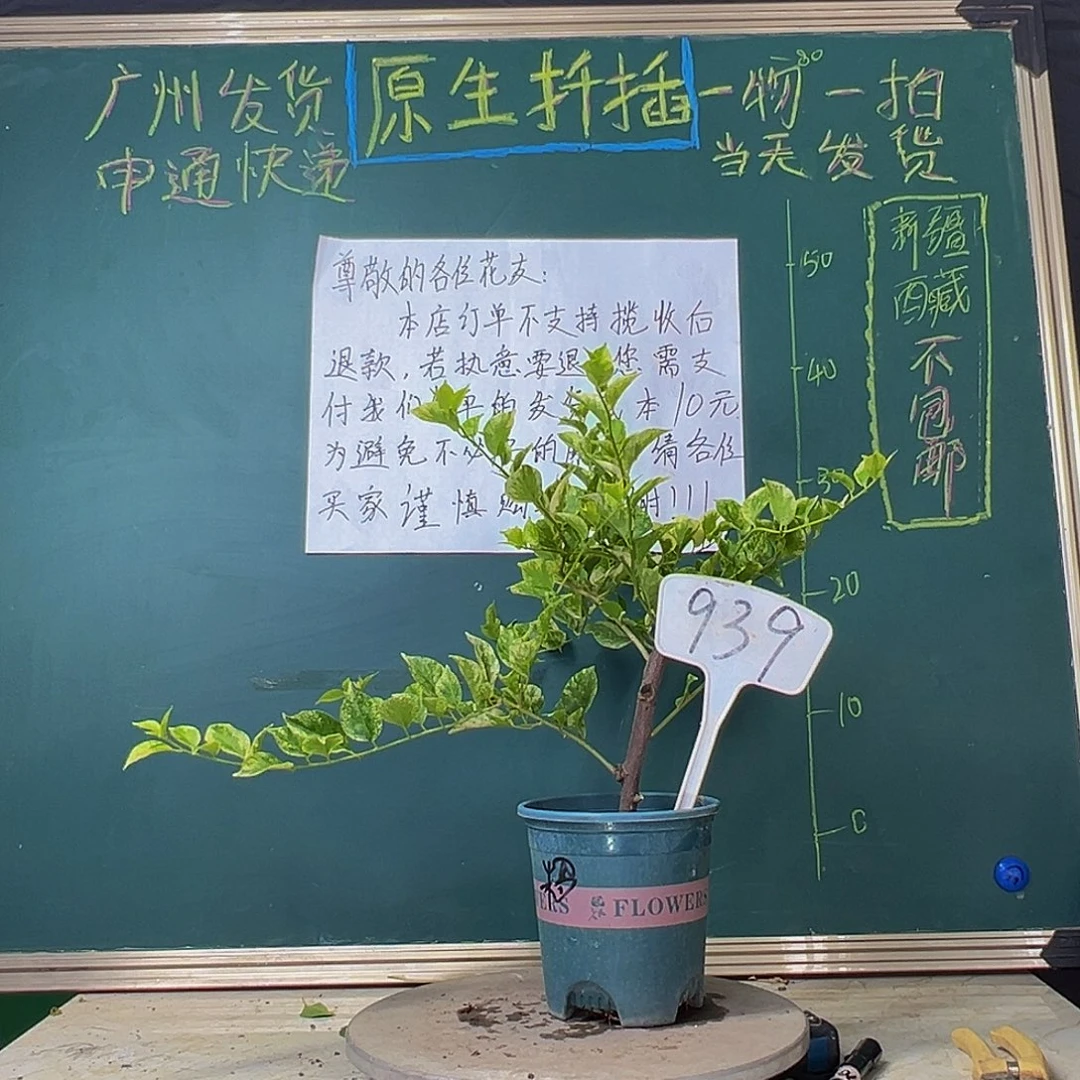 广州发货
原生扦插
一物一拍
申通快递
当天发货
新疆
西藏
不
包
邮
尊敬的各位花友:
本店订单不支持揽收后
退款,若执意要退 您需支
付我们 平的发 本10元
为避免不必 的 各位
买家谨慎 时!!!
50
40
30
20
10
0
939
ERS FLOWERS